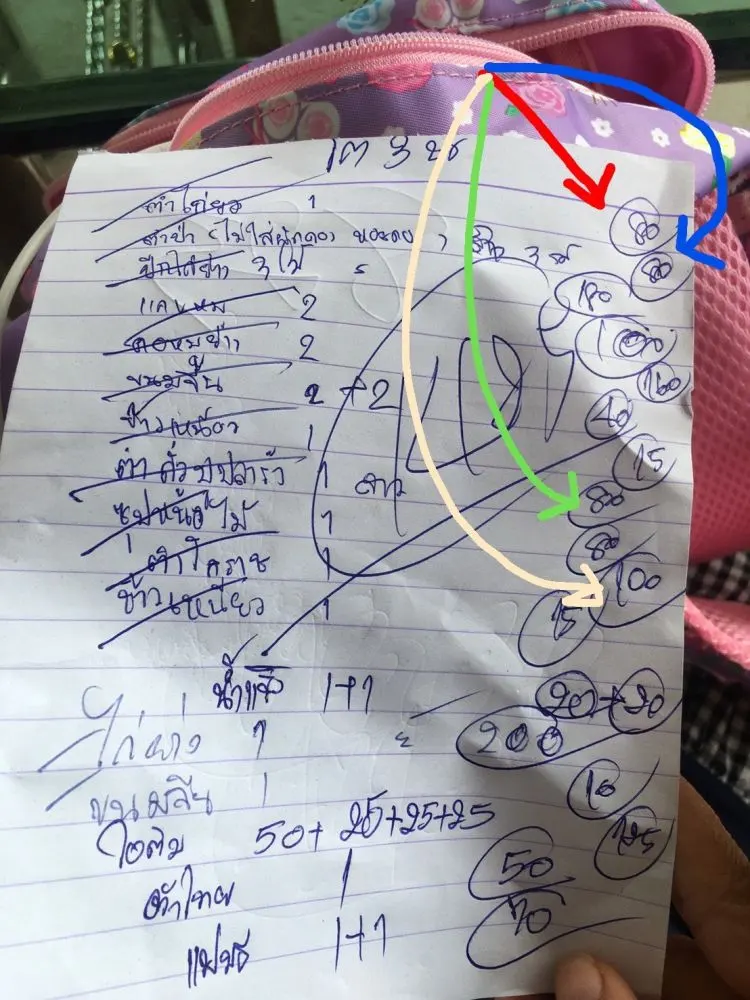 เต 3 ขีด
ตำไก่ยอ 1 80
ตำป่า (ไม่ใส่ผักดอง หอยดอง) 80
ปีกไก่ย่าง 3 ไม้ 180
แคบหมู 2 100
คอหมูย่าง 2 160
ขนมจีน 2+2 40
ข้าวเหนียว 1 15
ตำถั่วปูปลาร้า 1 80
ซุปหน่อไม้ 1 80
ตำโคราช 1 100
ข้าวเหนียว 1 15
น้ำแข็ง 1+1 20+20
ไก่ย่าง 1 200
ขนมจีน 1 10
50+25+25+25 125
ตำไทย 1 50
1+1 70